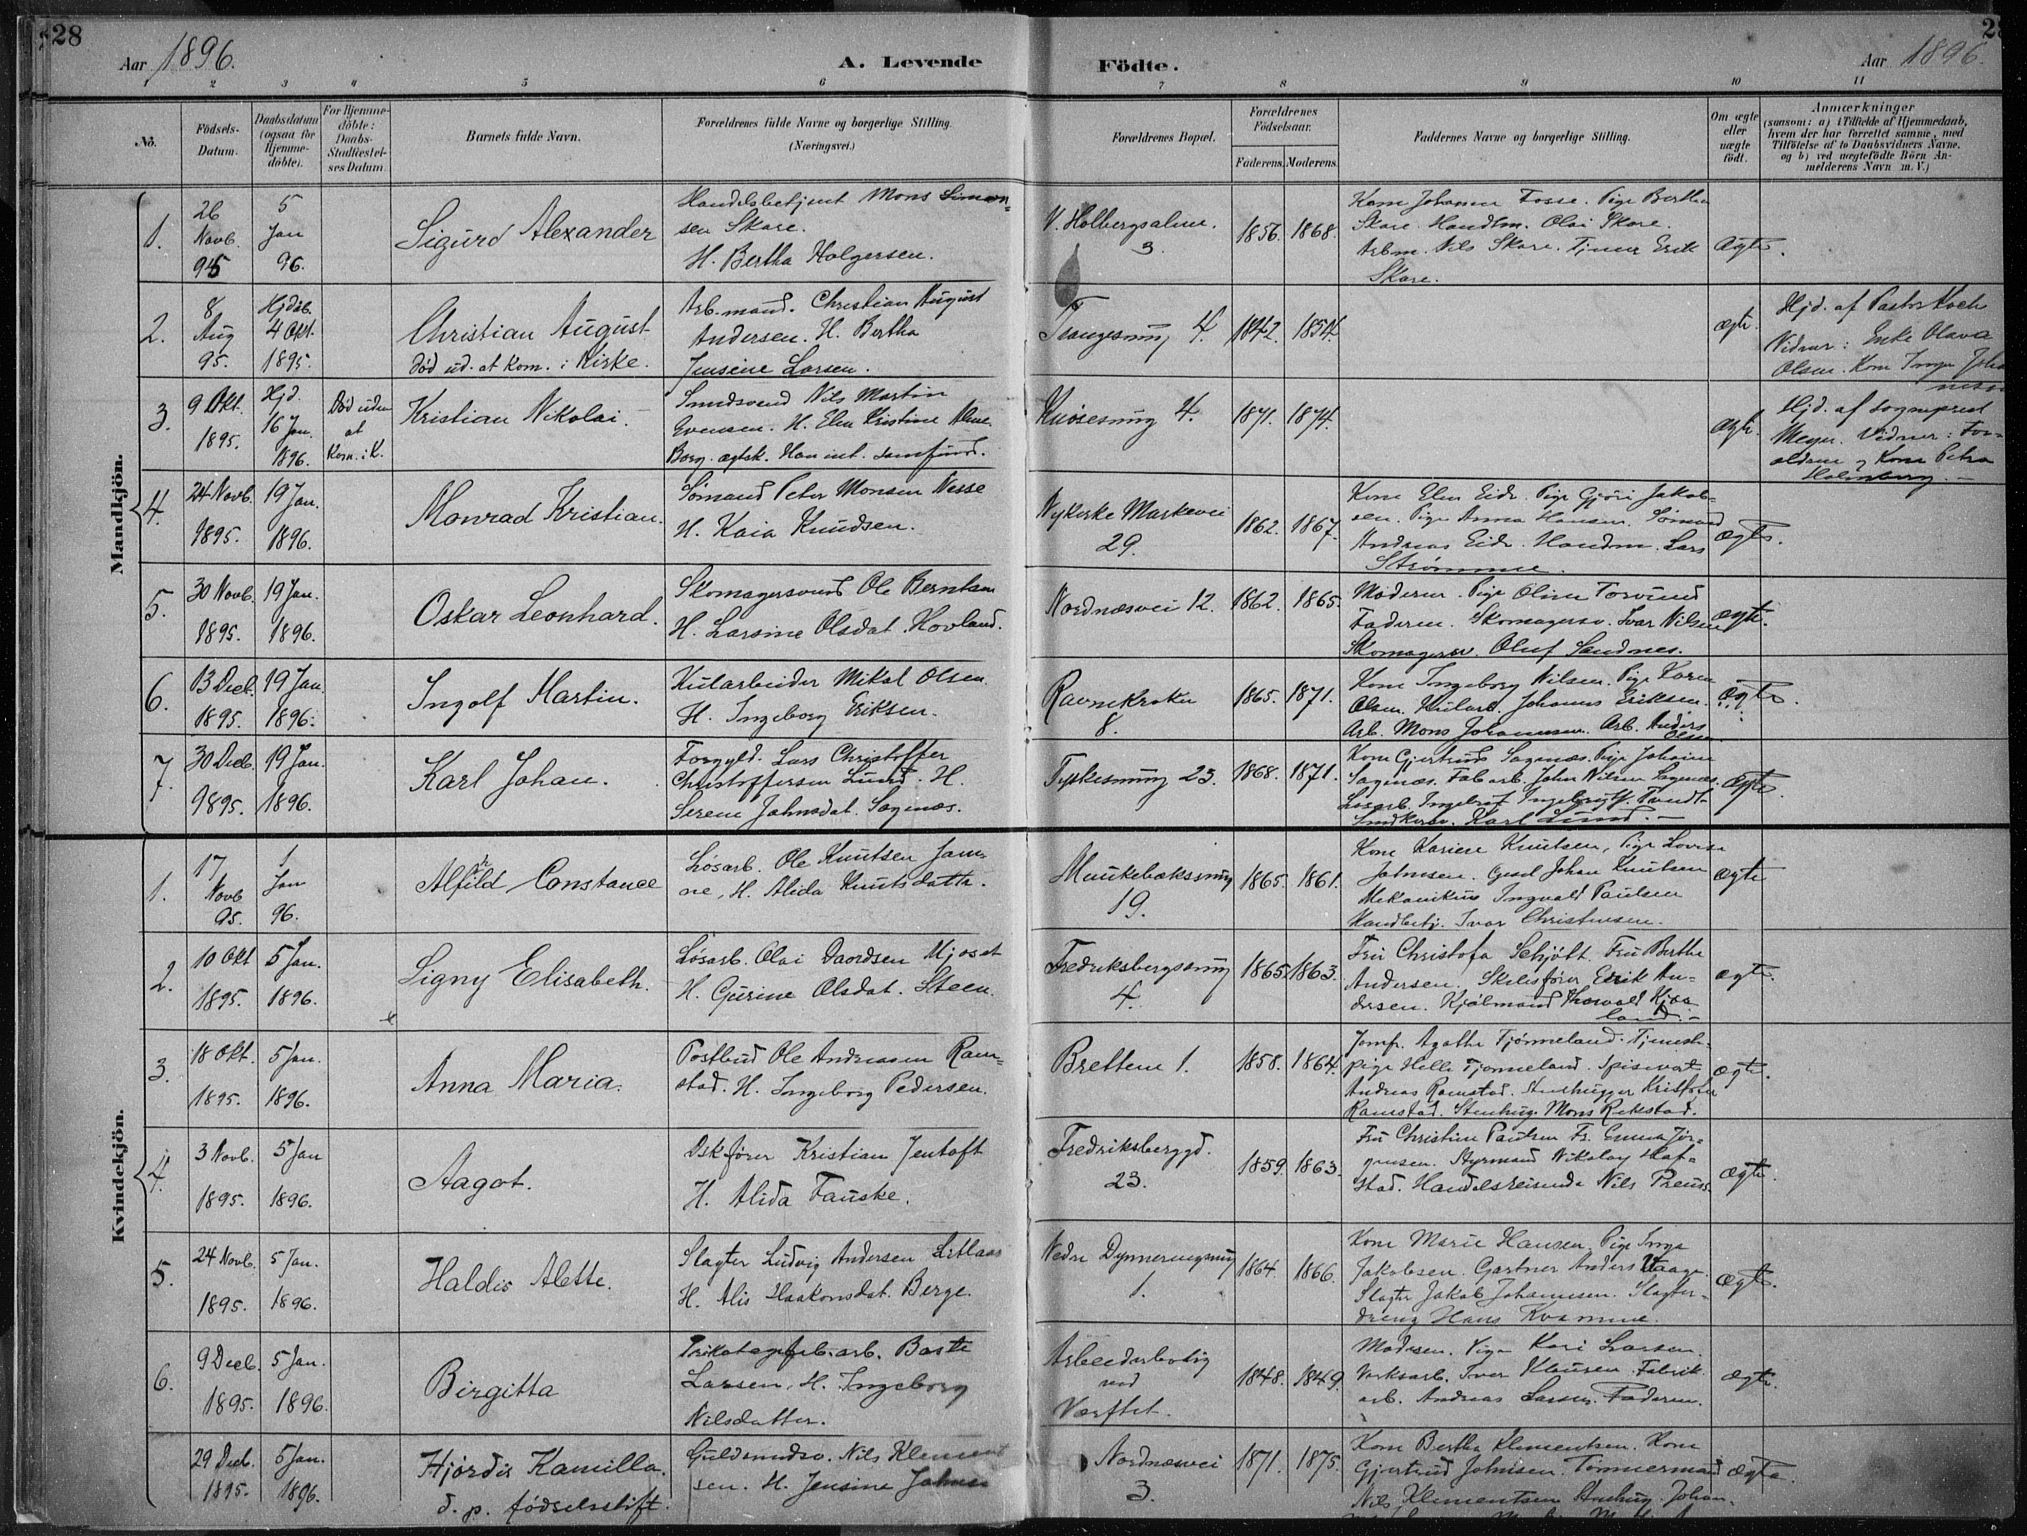 28
Aar 1896.
A. Levende
Födte.
Aar 1896.
28
1 2 3 4 5 6 7 8 9 10 11
No.
Födsels-
Datum.
Daabsdatum
(ogsaa for
Hjemme-
döbte).
For Hjemme-
döbte:
Daabs-
Stadfæstel-
ses Datum
Barnets fulde Navn.
Forældrenes fulde Navne og borgerlige Stilling.
(Næringsvei.)
Forældrenes Bopæl.
Forældrenes
Födselsaar.
Faderens.
Moderens.
Faddernes Navne og borgerlige Stilling.
Om ægte
eller
uægte
födt.
Anmærkninger
(saasom: a) i Tilfælde af Hjemmedaab,
hvem der har forrettet samme, med
Tilföielse af to Daabsvidners Navne.
og b) ved uægtefödte Börn An-
melderens Navn m. V.)
Mandkjön.
1.
26
Novb.
95
5
Jan
96.
Sigurd Alexander
Handelsbetjent Mons Simon-
sen Skare.
H. Bertha Holgersen.
V. Holbergsalm.
3.
1856. 1868.
Kone Johanna Fosse. Pige Bertha
Skare. Handlm. Olai Skare.
Arbm. Nils Skare. Tjener Erik
Skare.
Ægte.
2.
8
Aug
95.
Hjdöb.
4 Okt.
1895.
Christian August.
død ud. at kom. i Kirke.
Arb.mand. Christian August
Andersen. H. Bertha
Jensine Larsen.
Trangesmug 4.
1842. 1854.
ægte.
Hjd. af Pastor Koch
Vidner: Enke Olava
Olsen. Kone Inga Joha
nnesen
3.
9 Okt.
1895.
Hjd.
16 Jan.
1896.
Død uden
at
Kom. i K.
Kristian Nikolai.
Smedsvend Nils Martin
Evensen. H. Elen Kristine
Borg. ægtsk.
Knøsesmug 4.
1871. 1874.
ægte.
Hjd. af sogneprest
Meyer. Vidner: For-
ældrene og Kone Petra
Holmberg.
4.
24 Novb.
1895.
19 Jan.
1896.
Monrad Kristian.
Sömand Peter Monsen Nesse
H. Kaia Knudsen.
Nykirke Markevei
29.
1862. 1867.
Kone Elen Eide. Pige Gjöri Jakob-
sen. Pige Anna Hansen. Sömand
Andreas Eide. Handm. Lars
Strömme.
Ægte.
5.
30 Novb.
1895.
19 Jan.
1896.
Oskar Leonhard.
Skomagersvend Ole Berntsen
H. Larsine Olsdat. Hovland.
Nordnæsvei 12.
1862. 1865.
Moderen. Pige Olina Torvund
Faderen. Skomagersv. Ivar Nilsen
Skomagersv. Oluf Sandnes.
ægte.
6.
13 Decb.
1895.
19 Jan.
1896.
Ingolf Martin.
Kularbeider Mikal Olsen.
H. Ingeborg Eriksen.
Ravnekroken
8.
1865. 1871.
Kone Ingeborg Nilsen. Pige Karen
Olsen. Kularb. Johannes Eriksen.
Arb. Mons Johannesen. Arb. Anders
Olsen
Ægte.
7.
30 Decb.
1895.
19 Jan.
1896.
Karl Johan.
Forgyld. Lars Christoffer
Christoffersen Lund. H.
Serene Johnsdat. Sagenæs.
Tyskesmug 23.
1868. 1871.
Kone Gjertrud Sagenæs. Pige Johanne
Sagenæs. Fabarb. John Nilsen Sagenæs.
Løsarb. Ingebrigt Tvedt.
Karl Lund.
Ægte.
Kvindekjön.
1.
17
Novb
95.
1
Jan
96.
Alfhild Constance
Løsarb. Ole Knutsen Jam-
ne, H. Alida Knutsdatter.
Munkebæksmug
19.
1865. 1861.
Kone Karine Knutsen, Pige Lovise
Johnsen. Gesel Johan Knutsen
Mekanikus Ingvald Paulsen
Handbetj. Ivar Christensen.
Ægte
2.
10 Okt
1895.
5 Jan.
1896.
Signy Elisabeth.
Løsarb. Olai Daordsen Mjøset
H. Gurine Olsdat. Steen.
Fredriksbergsmug
4.
1865. 1863.
Fru Christofa Schjött. Fru Berthe
Andersen. Skibsfører Erik An-
dersen. Kjølmand Thorvald Kjøs
land.
ægte.
3.
18 Okt.
1895.
5 Jan.
1896.
Anna Maria.
Postbud Ole Andreassen Ram-
stad. H. Ingeborg Pedersen.
Brettene 1.
1858. 1864.
Jomf. Agathe Tjønneland. Tjenest-
pige Helle Tjønneland. Spisevært
Andreas Ramstad. Stenhugger Kristofer
Ramstad. Stenhug. Mons Rekstad.
ægte.
4.
3 Novb.
1895.
5 Jan
1896.
Aagot.
Dskfører Kristian Jentoft
H. Alida Fauske.
Fredriksberggd.
23.
1859. 1863.
Fru Christine Paulsen Fr. Emma Jör-
gensen. Styrmand Nikolay Haf-
stad. Handelsreisende Nils Preus.
ægte.
5.
24 Novb.
1895.
5 Jan.
1896.
Haldis Alette.
Slagter Ludvig Andersen Litlaas
H. Alis Haakonsdat. Berge.
Nedre Dynneringsmug
1.
1864. 1866.
Kone Marie Hansen, Pige Inga
Jakobsen. Gartner Anders Vaage.
Slagter Jakob Johannesen. Slagter-
dreng Hans Kvamme.
ægte.
6.
9 Decb.
1895.
5 Jan.
1896.
Birgitta
Trikotagefab.arb. Baste
Larsen, H. Ingeborg
Nilsdatter.
Arbeiderbolig
ved
Værftet.
1848. 1849.
Moderen. Pige Kari Larsen.
Verksarb. Iver Klausen. Fabrik
arb. Andreas Larsen. Faderen.
Ægte.
29 Decb.
1895.
5 Jan.
1896.
Hjørdis Kamilla.
d. p. fødselsstift.
Guldsmedsv. Nils Klement
sen. H. Jensine Johnse
Nordnæsvei
3.
1871. 1875.
Kone Bertha Klementsen. Kone
Gjertrud Johnsen. Tømmermand
Nils Klementsen Johan.
ægte.